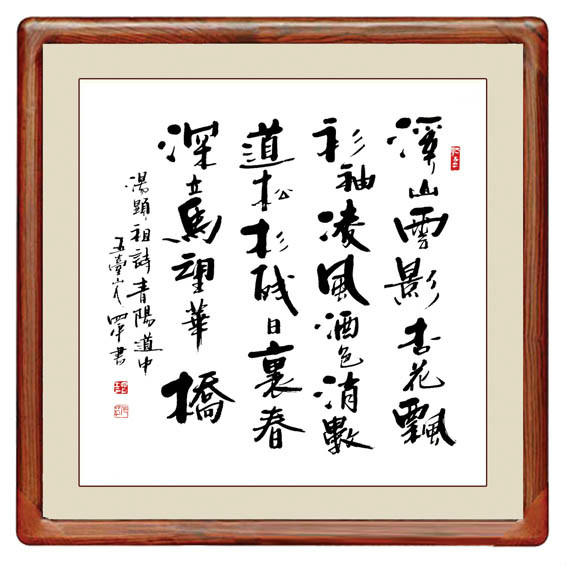 溪山雲影杏花飄
衫袖凌風酒色消數
道松杉殘日裏春
深立馬望華橋
湯顯祖詩青陽道中
五臺山 書